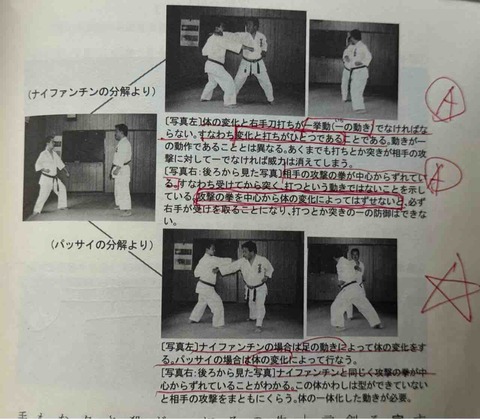 (ナイファンチンの分解より)
[写真左]体の変化と右手刀打ちが一挙動(一の動き)でなければな
らない。すなわち変化と打ちがひとつであることである。動きが一
の動作であることとは異なる。あくまでも打ちとか突きが相手の攻
撃に対して一でなければ威力は消えてしまう。
[写真右:後ろから見た写真]相手の攻撃の拳が中心からずれてい
る。すなわち受けてから突く、打つという動きではないことを示し
ている。攻撃の拳を中心から体の変化によってはずせないと、必ず
右手が受けを取ることになり、打つとか突きの一の防御はできな
い。
(パッサイの分解より)
[写真左]ナイファンチンの場合は足の動きによって体の変化をす
る。パッサイの場合は体の変化によって行なう。
[写真右:後ろから見た写真]ナイファンチンと同じく攻撃の拳が中
心からずれていることがわかる。この体かわしは型ができていない
と相手の攻撃をまともにくらう。体の一体化した動きが必要。
A
A